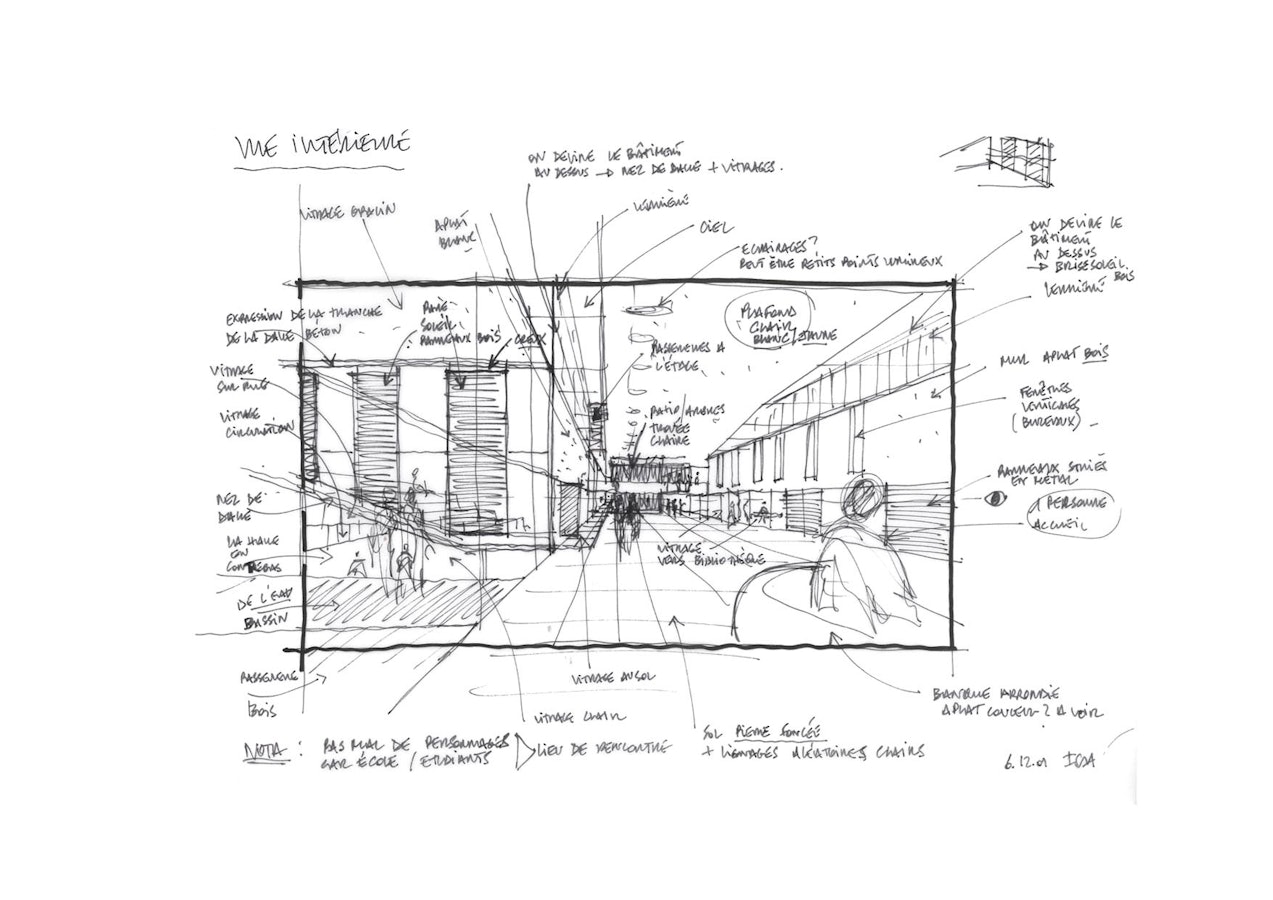 VUE INTÉRIEURE
ON DEVINE LE BÂTIMENT
AU DESSUS → NEZ DE DALLE + VITRAGES.
VITRAGE
APLAT
BLANC
VERRIÈRE
CIEL
ECLAIRAGES?
PEUT ÊTRE PETITS POINTS LUMINEUX
ON DEVINE LE
BÂTIMENT
AU DESSUS
→ BRISE SOLEIL
BOIS
VERRIÈRE
EXPRESSION DE LA TRANCHE
DE LA DALLE BETON
PARE
SOLEIL
PANNEAUX BOIS
CREUX
PLAFOND
CLAIR
BLANC/JAUNE
PASSERELLES A
L'ÉTAGE
VITRAGE
SUR RUE
VITRAGE
CIRCULATION
PATIO/ARBRES
TROUÉE
CLAIRE
MUR APLAT BOIS
FENÊTRES
VERTICALES
(BUREAUX)
PANNEAUX STRIÉS
EN METAL
PERSONNE
ACCUEIL
NEZ DE
DALLE
LA HALLE
EN
CONTREBAS
DE L'EAU
BASSIN
VITRAGE
VERS BIBLIOTHÈQUE
PASSERELLE
BOIS
VITRAGE AU SOL
VITRAGE CLAIR
BANQUE ARRONDIE
APLAT COULEUR? A VOIR
SOL PIERRE FONCÉE
+ LIGNAGES ALÉATOIRES CLAIRS
NOTA : PAS MAL DE PERSONNAGES
CAR ÉCOLE / ETUDIANTS
LIEU DE RENCONTRE
6.12.01